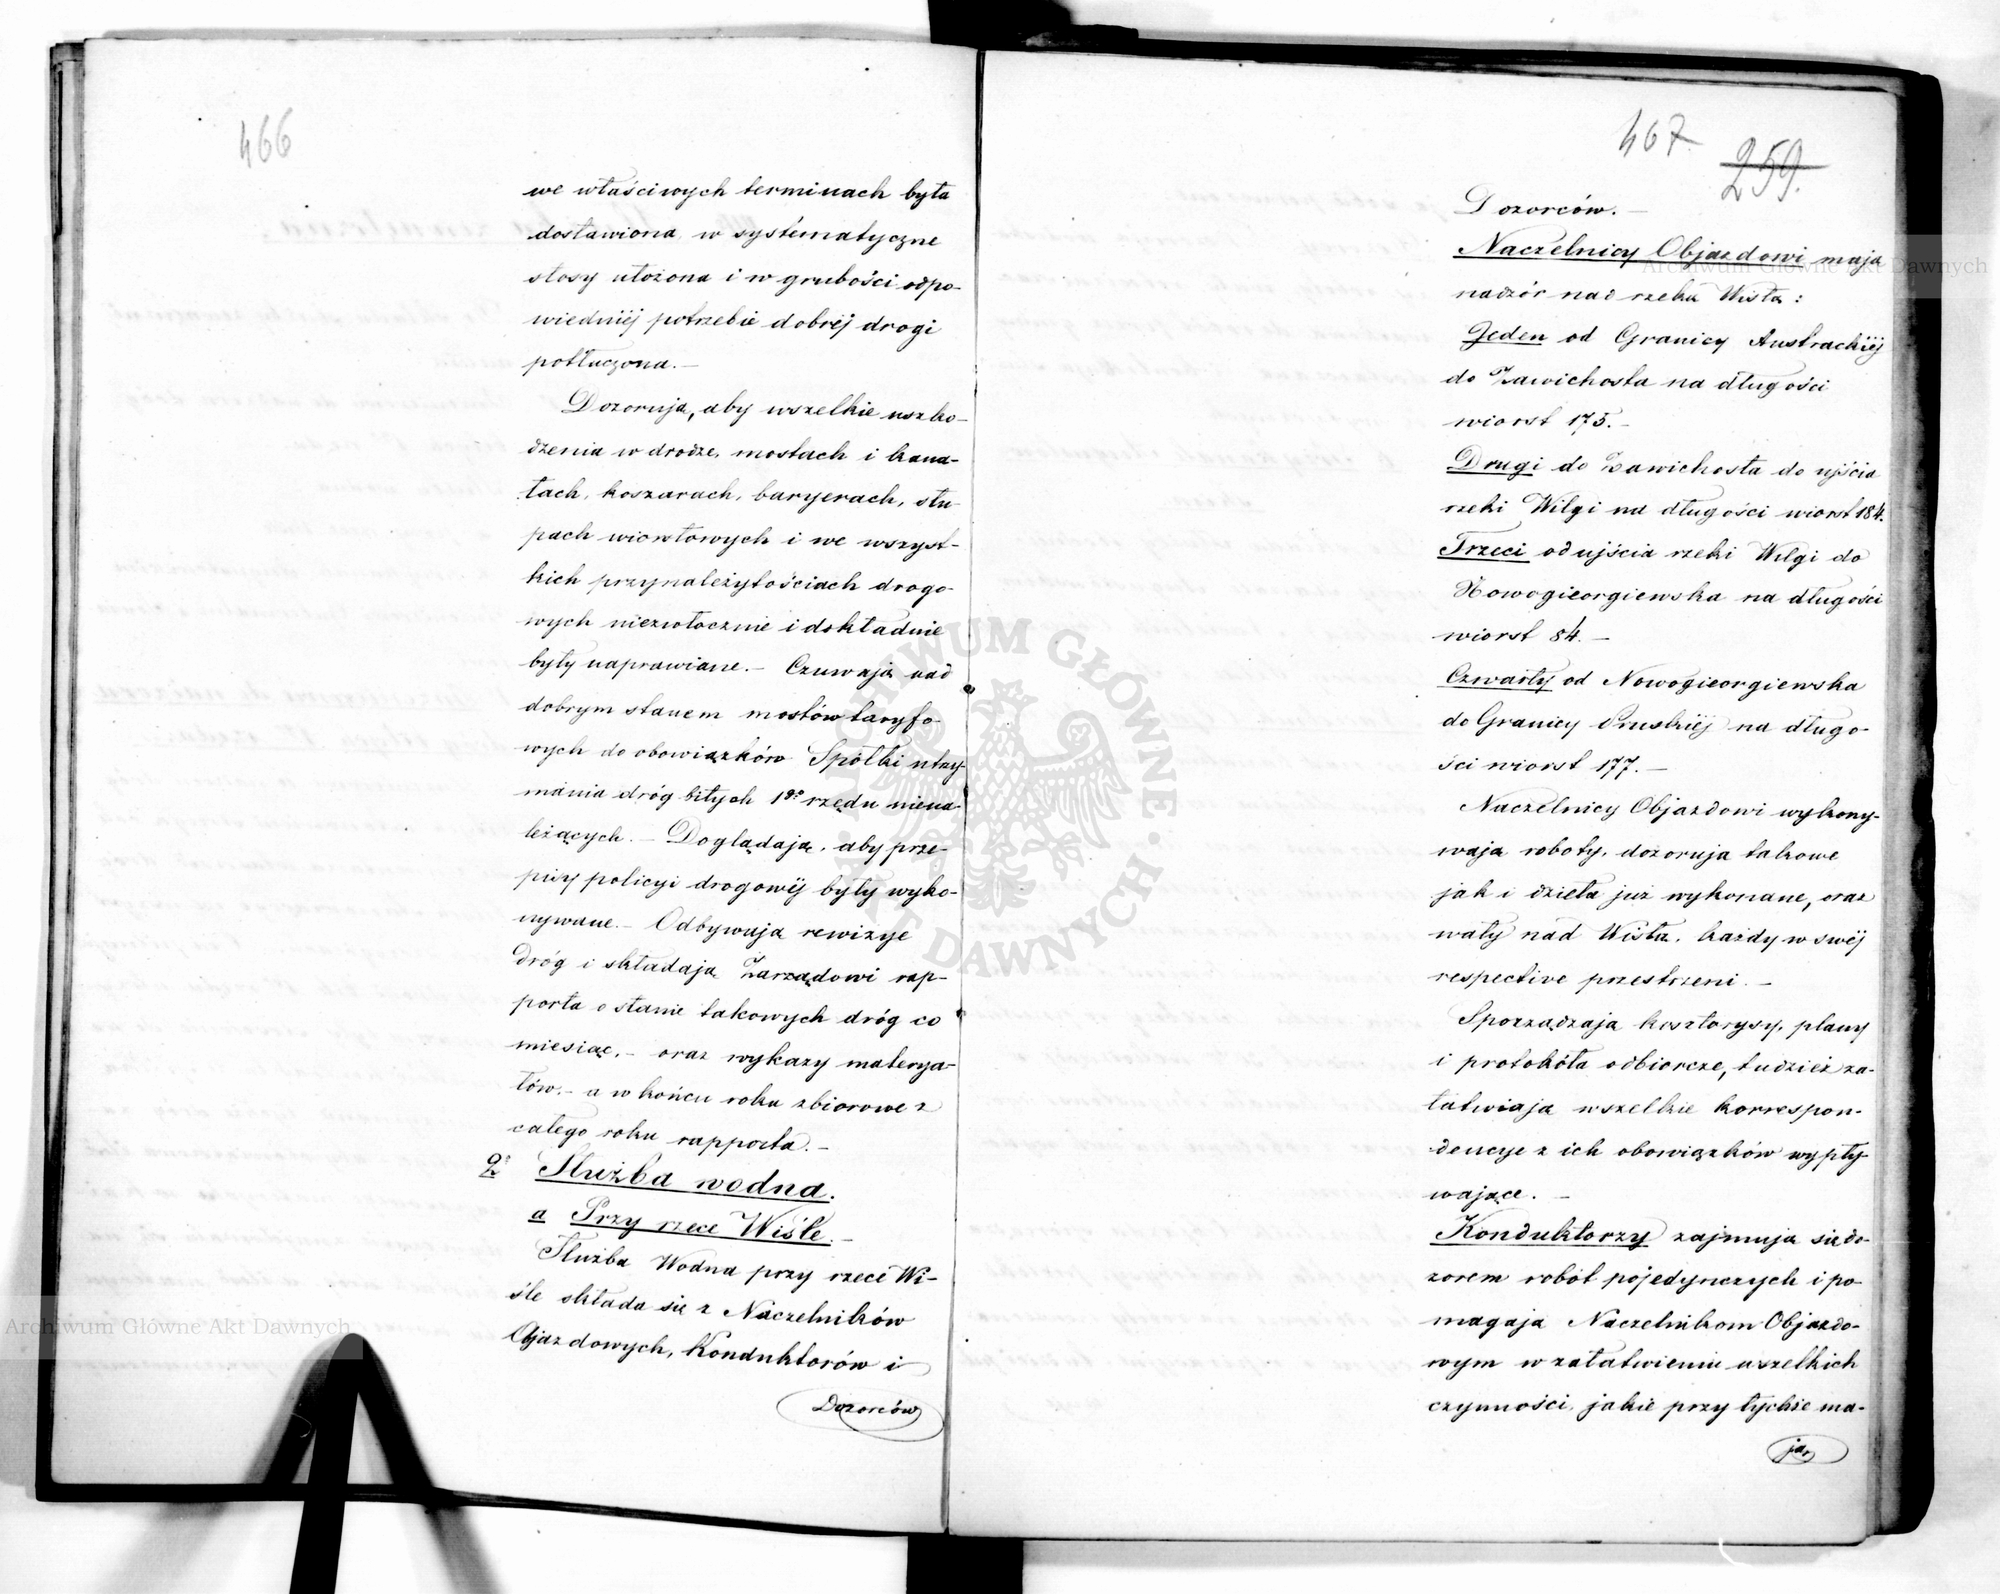 466
we właściwych terminach była
dostawiona, w systematyczne
stosy ułożona i w grubości odpo-
wiedniéj potrzebie dobréj drogi
potłuczona. —
Dozorują, aby wszelkie uszko-
dzenia w drodze, mostach i kana-
łach, koszarach, baryerach, słu-
pach wiorstowych i we wszyst-
kich przynależytościach drogo-
wych niezwłocznie i dokładnie
były naprawiane. — Czuwają nad
dobrym stanem mostów taryfo-
wych do obowiązków Spółki utrzy-
mania dróg bitych 1go rzędu niena-
leżących. — Doglądają, aby prze-
pisy policyi drogowéj były wyko-
nywane. — Odbywają rewizye
dróg i składają Zarządowi rap-
porta o stanie takowych dróg co
miesiąc, — oraz wykazy materya-
łów, — a w końcu roku zbiorowe z
całego roku rapporta. —
2° Służba wodna.
a Przy rzece Wiśle. —
Służba Wodna przy rzece Wi-
śle składa się z Naczelników
Objazdowych, Konduktorów i
Dozorców
467
259.
Dozorców. —
Naczelnicy Objazdowi mają
nadzór nad rzeką Wisłą:
Jeden od Granicy Austrackiéj
do Zawichosta na długości
wiorst 175. —
Drugi do Zawichosta do ujścia
rzeki Wilgi na długości wiorst 184.
Trzeci od ujścia rzeki Wilgi do
Nowogieorgiewska na długości
wiorst 84. —
Czwarty od Nowogieorgiewska
do Granicy Pruskiéj na długo-
ści wiorst 177. —
Naczelnicy Objazdowi wykony-
wają roboty, dozorują takowe
jak i dzieła już wykonane, oraz
wały nad Wisłą, każdy w swéj
respective przestrzeni. —
Sporządzają kosztorysy, plany
i protokóła odbiorcze, tudzież za-
łatwiają wszelkie korrespon-
dencye z ich obowiązków wypły-
wające. —
Konduktorzy zajmują się do-
zorem robót pojedynczych i po-
magają Naczelnikom Objazdo-
wym w załatwieniu wszelkich
czynności, jakie przy tychże ma-
ją,
Archiwum Główne Akt Dawnych
Archiwum Główne Akt Dawnych
ARCHIWUM GŁÓWNE AKT DAWNYCH